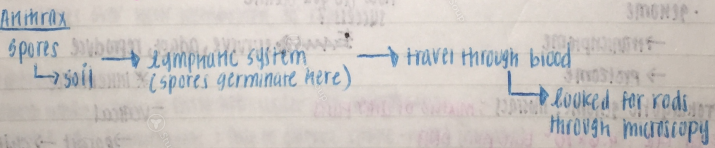 Anthrax
spores → lymphatic system → travel through blood
↳ soil (spores germinate here)
↳ looked for rods
through microscopy